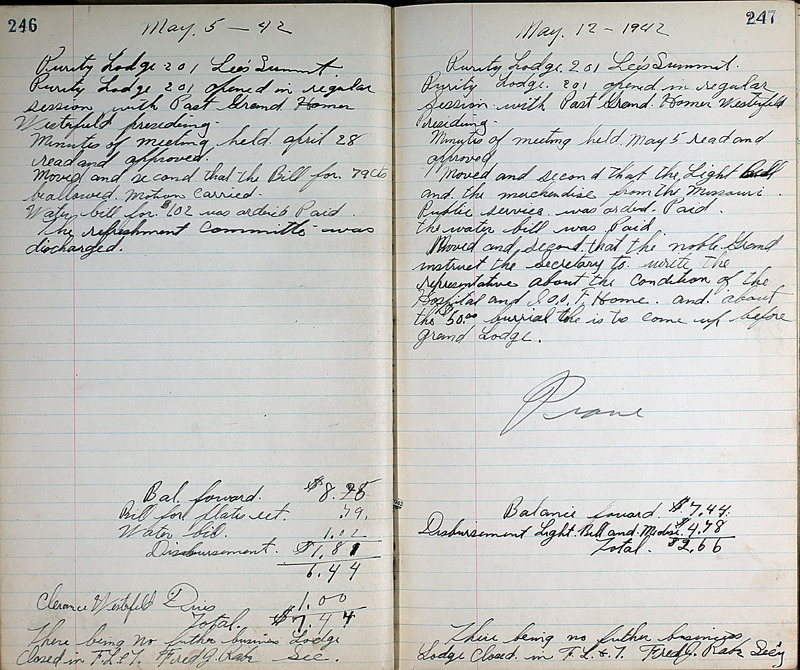 246
May. 5 - 42
Purity Lodge 201 Lee's Summit.
Purity Lodge 201 opened in regular
session with Past Grand Homer
Westerfield presiding.
Minutes of meeting held april 28
read and approved.
Moved and second that the Bill for 79cts
be allowed. Motion Carried.
Water bill for $1.02 was orded Paid.
The refreshment Committe was
discharged.
Bal. forward. $8.25
Bill for ect. .79.
Water bill. 1.02
Disbursement. $1.81
6.44
Clerance Westefeld Dues 1.00
Total. $7.44
There being no futher business Lodge
Closed in F.L.&T. Fred J. Sec.
247
May. 12 - 1942
Purity Lodge. 201 Lee's Summit.
Purity Lodge. 201 opened in regular
session with Past Grand. Homer Westerfeld
Presiding.
Minutes of meeting held May 5 read and
approved
Moved and second that the Light Bill
and the merchandise from the Missouri
Public service was orded Paid.
the water bill was Paid
Moved and second that the noble Grand
instruct the secretary to write the
representative about the Condition of the
Hospital and I.O.O.F. Home. and about
the 50.00 burrial is to come up before
Grand Lodge.
Balance foward $7.44.
Disbursement Light Bill and $4.78
Total. $2.66
There being no futher business
Lodge Closed in F.L.&T. Fred J. Sec'y